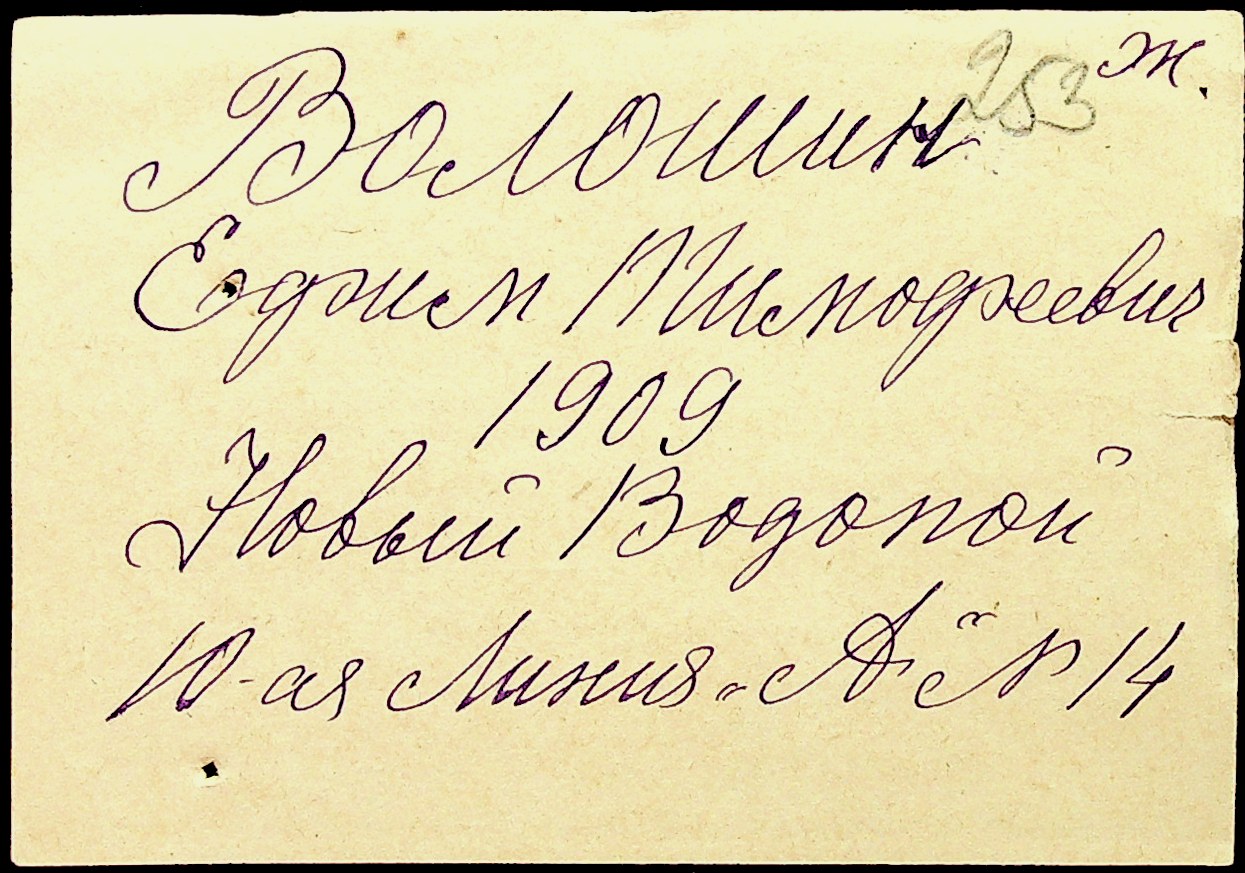 253 ж.
Волошин
Ефим Тимофеевич
1909
Новый Водопой
10-ая Линия „А" № 14